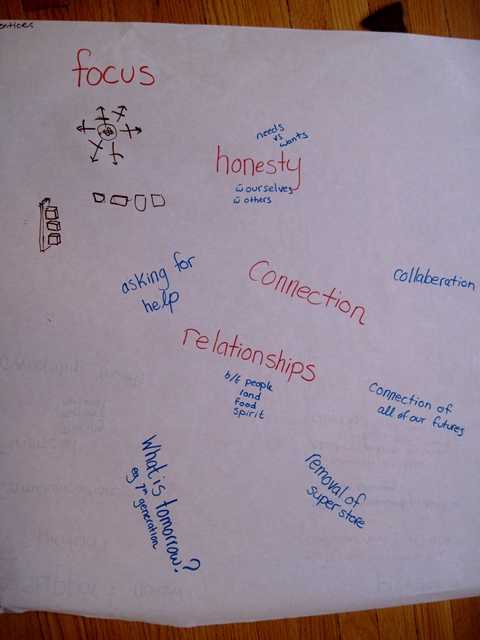 focus
needs
vs
wants
honesty
ourselves
others
asking for
help
Connection
collaberation
relationships
b/t people
land
food
spirit
connection of
all of our futures
What is tomorrow?
eg 7th generation
removal of
super store